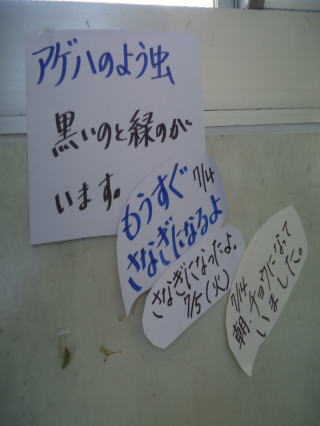 アゲハのよう虫
黒いのと緑のがい
います。
もうすぐ 7/4
さなぎになるよ
さなぎになったよ。
7/5(火)
7/14
朝チョウになって
いました。